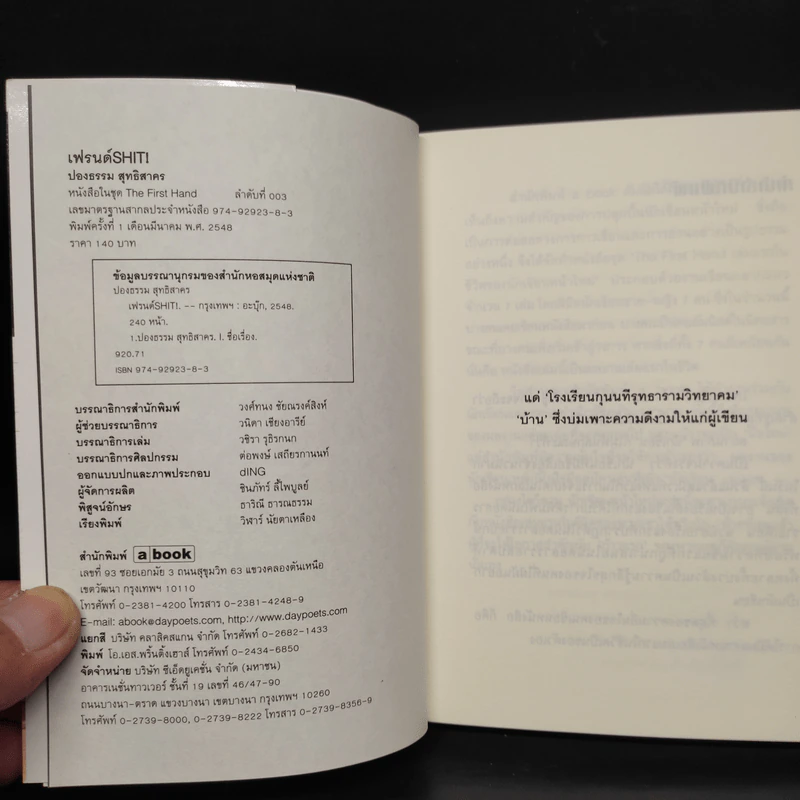 เฟรนด์SHIT!
ปองธรรม สุทธิสาคร
หนังสือในชุด The First Hand ลำดับที่ 003
เลขมาตรฐานสากลประจำหนังสือ 974-92923-8-3
พิมพ์ครั้งที่ 1 เดือนมีนาคม พ.ศ. 2548
ราคา 140 บาท
ข้อมูลบรรณานุกรมของสำนักหอสมุดแห่งชาติ
ปองธรรม สุทธิสาคร
เฟรนด์SHIT!. -- กรุงเทพฯ : อะบุ๊ก, 2548.
240 หน้า.
1.ปองธรรม สุทธิสาคร. I. ชื่อเรื่อง.
920.71
ISBN 974-92923-8-3
บรรณาธิการสำนักพิมพ์ วงศ์ทนง ชัยณรงค์สิงห์
ผู้ช่วยบรรณาธิการ วนิดา เชียงอารีย์
บรรณาธิการเล่ม วชิรา รุธิรกนก
บรรณาธิการศิลปกรรม ต่อพงษ์ เสถียรกานนท์
ออกแบบปกและภาพประกอบ dING
ผู้จัดการผลิต ชินภัทร์ ลี้ไพบูลย์
พิสูจน์อักษร ธาริณี ธารณธรรม
เรียงพิมพ์ วิฬาร์ นัยตาเหลือง
สำนักพิมพ์ a book
เลขที่ 93 ซอยเอกมัย 3 ถนนสุขุมวิท 63 แขวงคลองตันเหนือ
เขตวัฒนา กรุงเทพฯ 10110
โทรศัพท์ 0-2381-4200 โทรสาร 0-2381-4248-9
E-mail: abook@daypoets.com, http://www.daypoets.com
แยกสี บริษัท คลาสิคสแกน จำกัด โทรศัพท์ 0-2682-1433
พิมพ์ โอ.เอส.พริ้นติ้งเฮาส์ โทรศัพท์ 0-2434-6850
จัดจำหน่าย บริษัท ซีเอ็ดยูเคชั่น จำกัด (มหาชน)
อาคารเนชั่นทาวเวอร์ ชั้นที่ 19 เลขที่ 46/47-90
ถนนบางนา-ตราด แขวงบางนา เขตบางนา กรุงเทพฯ 10260
โทรศัพท์ 0-2739-8000, 0-2739-8222 โทรสาร 0-2739-8356-9
แด่ 'โรงเรียนกุนนทีรุทธารามวิทยาคม'
'บ้าน' ซึ่งบ่มเพาะความดีงามให้แก่ผู้เขียน